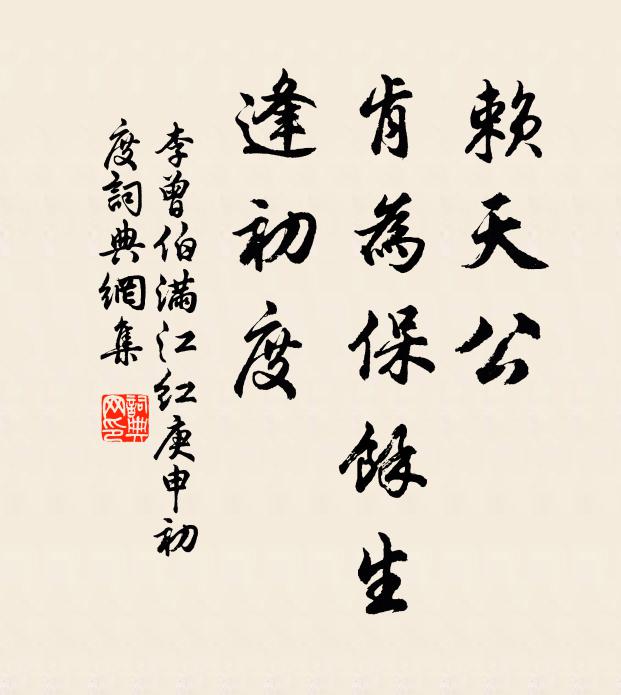 賴天公
肯為保餘生
逢初度
李曾伯滿江紅庚申初
度詞典網集
詞典網印